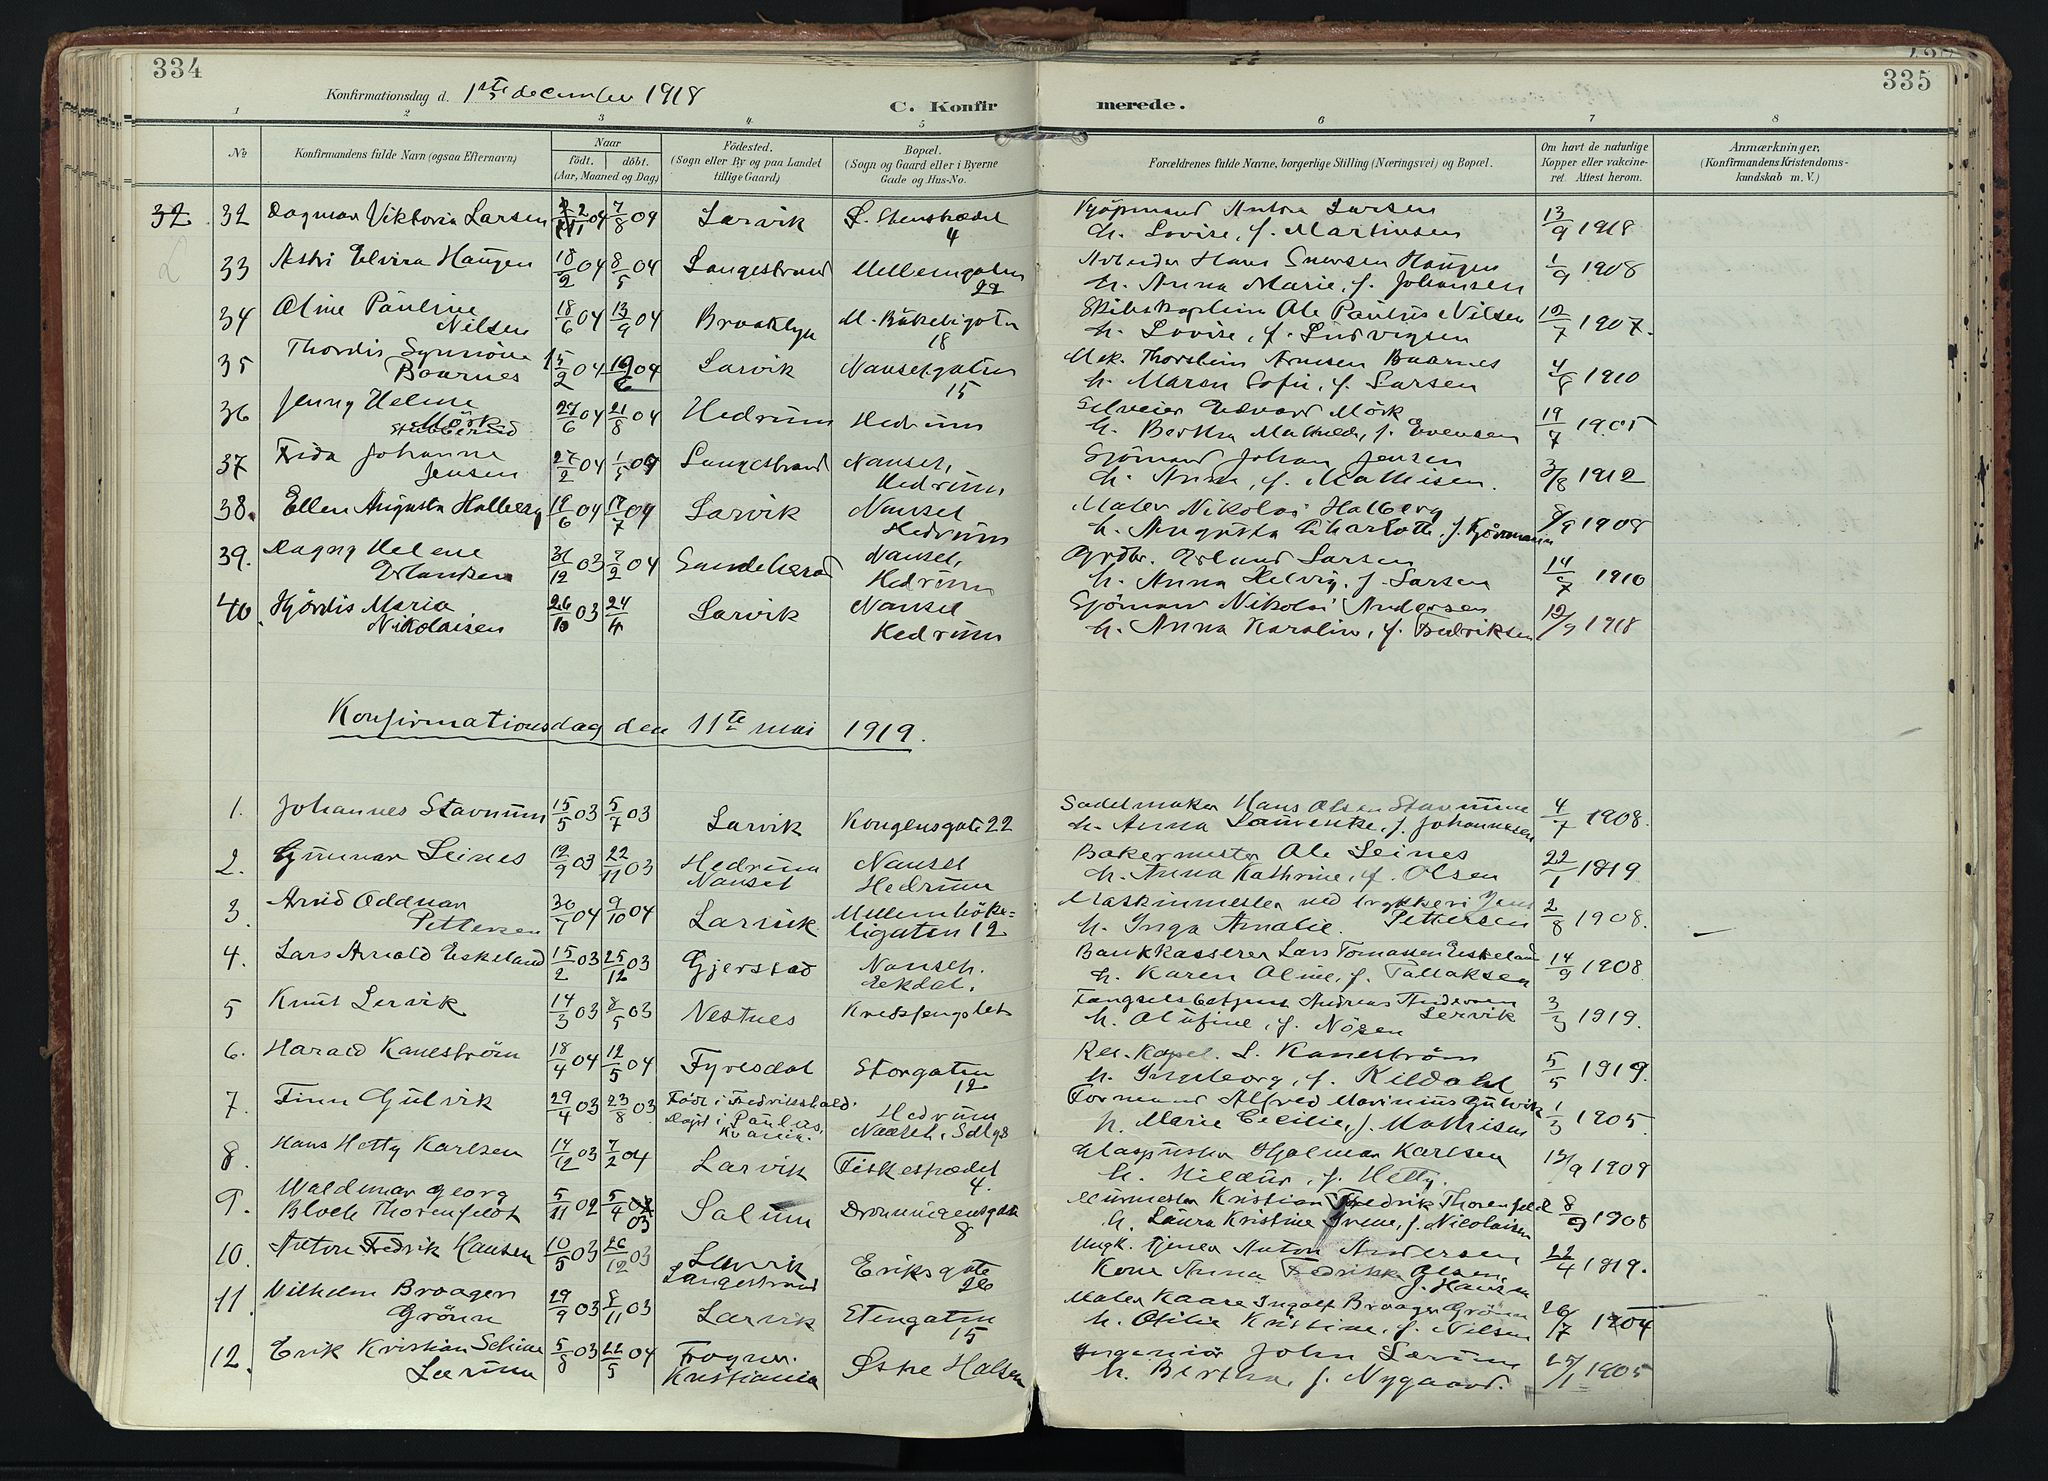 334
335
Konfirmationsdag d. 1ste december 1918
C. Konfirmerede.
1 2 3 4 5 6 7 8
No
Konfirmandens fulde Navn (ogsaa Efternavn)
Naar
født. døbt.
(Aar, Maaned og Dag)
Fødested.
(Sogn eller By og paa Landet
tillige Gaard)
Bopæl.
(Sogn og Gaard eller i Byerne
Gade og Hus-No.
Forældrenes fulde Navne, borgerlige Stilling (Næringsvei) og Bopæl.
Om havt de naturlige
Kopper eller vakcine-
ret. Attest herom.
Anmærkninger.
(Konfirmandens Kristendoms-
kundskab m. V.)
32 32 Dagmar Viktoria Larsen 04 7/8 04 Larvik Stenstrædet 4 Kjöpmand Anton Larsen
h. Lovise, f. Martinsen 13/9 1918
33 Astri Elvira Haugen 18/2 04 8/5 04 Langestrand Mellemgaten 22 Arbeider Hans Haugen
h. Anna Marie, f. Johansen 1/9 1908
34 Oline Pauline
Nilsen 18/6 04 13/9 04 Brooklyn M. Bökeligaten 18 Skibskaptein Ole Paulus Nilsen
h. Lovise, f. Ludvigsen 12/7 1907.
35 Thordis Synnöve
Baarnes 15/2 04 04 Larvik Nansetgaten 15 Mek. Thorstein Arnesen Baarnes
h. Maren Sofie, f. Larsen 4/8 1910
36 Jenny Helene
Mörk 27/6 04 21/8 04 Hedrum Hedrum Edvard Mörk
h. Bertha Mathilde, f. Evensen 19/7 1905
37 Frida Johanne
Jensen 27/2 04 1/5 04 Langestrand Nanset,
Hedrum Sjömand Johan Jensen
h. Anna, f. Mathisen. 3/8 1912
38. Ellen Augusta Halberg 19/6 04 17/7 04 Larvik Nanset
Hedrum Maler Nikolai Halberg
h. Augusta Charlotte, f. 8/9 1908
39. Dagny Helene
Erlandsen 31/12 03 7/2 04 Sandeherad Nanset,
Hedrum Grdbr. Erland Larsen
h. Anna Helvig, f. Larsen 14/7 1910
40. Hjördis Maria
Nikolaisen 26/10 03 24/4 Larvik Nanset
Hedrum Sjömand Nikolai Andersen
h. Anna Karoline, f. Fredriksen 12/9 1918
Konfirmationsdag den 11te mai 1919.
1. Johannes Stavnum 15/5 03 5/7 03 Larvik Kongensgate 22 Sadelmaker Hans Olsen Stavnum
h. Anna Laurentze, f. Johannesen 4/7 1908.
2. Gunnar Leines 12/9 03 22/11 03 Hedrum
Nanset Nanset
Hedrum Bakermester Ole Leines
h. Anna Kathrine, f. Olsen 22/1 1919.
3. Arvid Oddvar
Pettersen 30/7 04 9/10 04 Larvik Mellemböke=
ligaten 12 Maskinmester ved trykkeri Jens
Pettersen
h. Inga Amalie. 2/8 1908.
4. Lars Arnold Eskeland 15/2 03 25/12 03 Gjerstad Nanset.
Ekdal. Bankkasserer Lars Tomassen Eskeland
h. Karen Oline, f. Tallaksen 14/9 1908
5 Knut Lervik 14/3 03 8/5 03 Nestnes Kredsfengslet Fængselsbetjent Andreas Andersen
Lervik
h. Olufine, f. Nösen 3/3 1919.
6. Harald Kanestrøm 18/4 04 12/5 04 Fyresdal Storgaten 12 Res. Kapel. L. Kanestrøm
h. Ingeborg, f. Kildahl 5/5 1919.
7. Finn Gulvik 29/4 03 23/8 03 Född i Fredrikshald.
Döpt i Paulus,
Kr.ania. Hedrum
Nanset, Formand Alfred Marinius Gulvik
h. Marie Cecilie, f. Mathisen 1/3 1905.
8. Hans Hetty Karlsen 14/12 03 7/2 04 Larvik Fiskestrædet 4. Glaspuster Hjalmar Karlsen
h. Hildur, f. Hetty. 13/9 1909
9. Waldemar Georg
Bloch Thorenfeldt 5/11 02 5/4 03 Salum Dronningensgate 8 Murmester Kristian Fredrik Thorenfeldt
h. Laura Kristine Irene, f. Nicolaisen 8/9 1908
10. Anton Fredrik Hansen 10/5 03 26/12 03 Larvik
Langestrand Eriksgate 26 Anton Andersen
Kone Anna Fredrikke Olsen,
f. Hansen 22/4 1919.
11. Wilhelm Braager
Grönn 29/9 03 8/11 03 Larvik Stengaten 15 Maler Kaare Ingolf Braager Grönn
h. Otilie Kristine, f. Nilsen 26/7 1904
12. Erik Kristian Schive
Leerum 5/8 03 22/5 04 Frogner.
Kristiania Østre Halsen Ingeniør John Leerum
h. Bertha, f. Nygaard. 25/1 1905